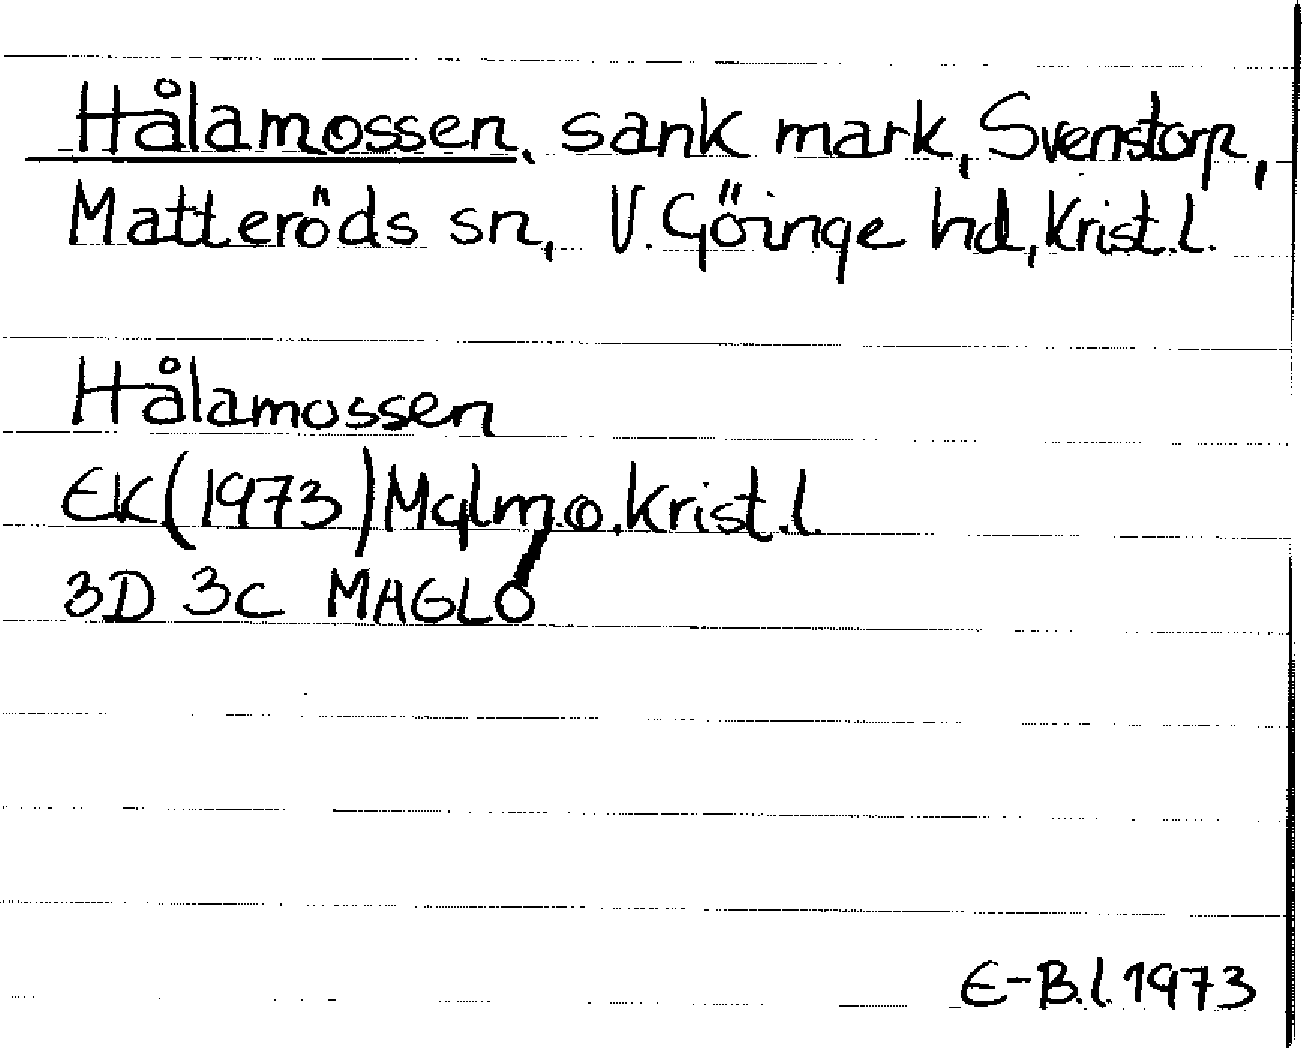 Hålamossen, sank mark, Svenstorp,
Matteröds sn, V. Göinge hd, Krist. l.
Hålamossen
EK (1973) Mqlm.o.Krist.l.
3D 3c MAGLÖ
E-B.l. 1973